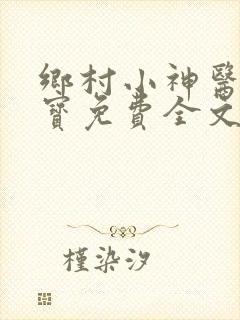 鄉村小神醫
寶免費全文
槿染汐